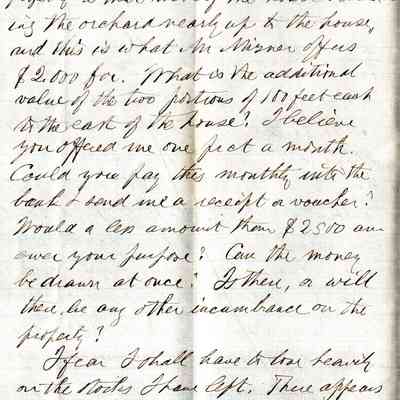 ing the orchard nearly up to the house,
and this is what Mr Mizner offers
$2.000 for. What is the additional
value of the two portions of 100 feet each
to the east of the house? I believe
you offered me one pr ct a month.
Could you pay this monthly into the
bank & send me a receipt or voucher?
Would a less amount than $2500 an-
swer your purpose? Can the money
be drawn at once? Is there, or will
there, be any other incumbrance on the
property?
I fear I shall have to lose heavily
on the stocks I have left. There appears